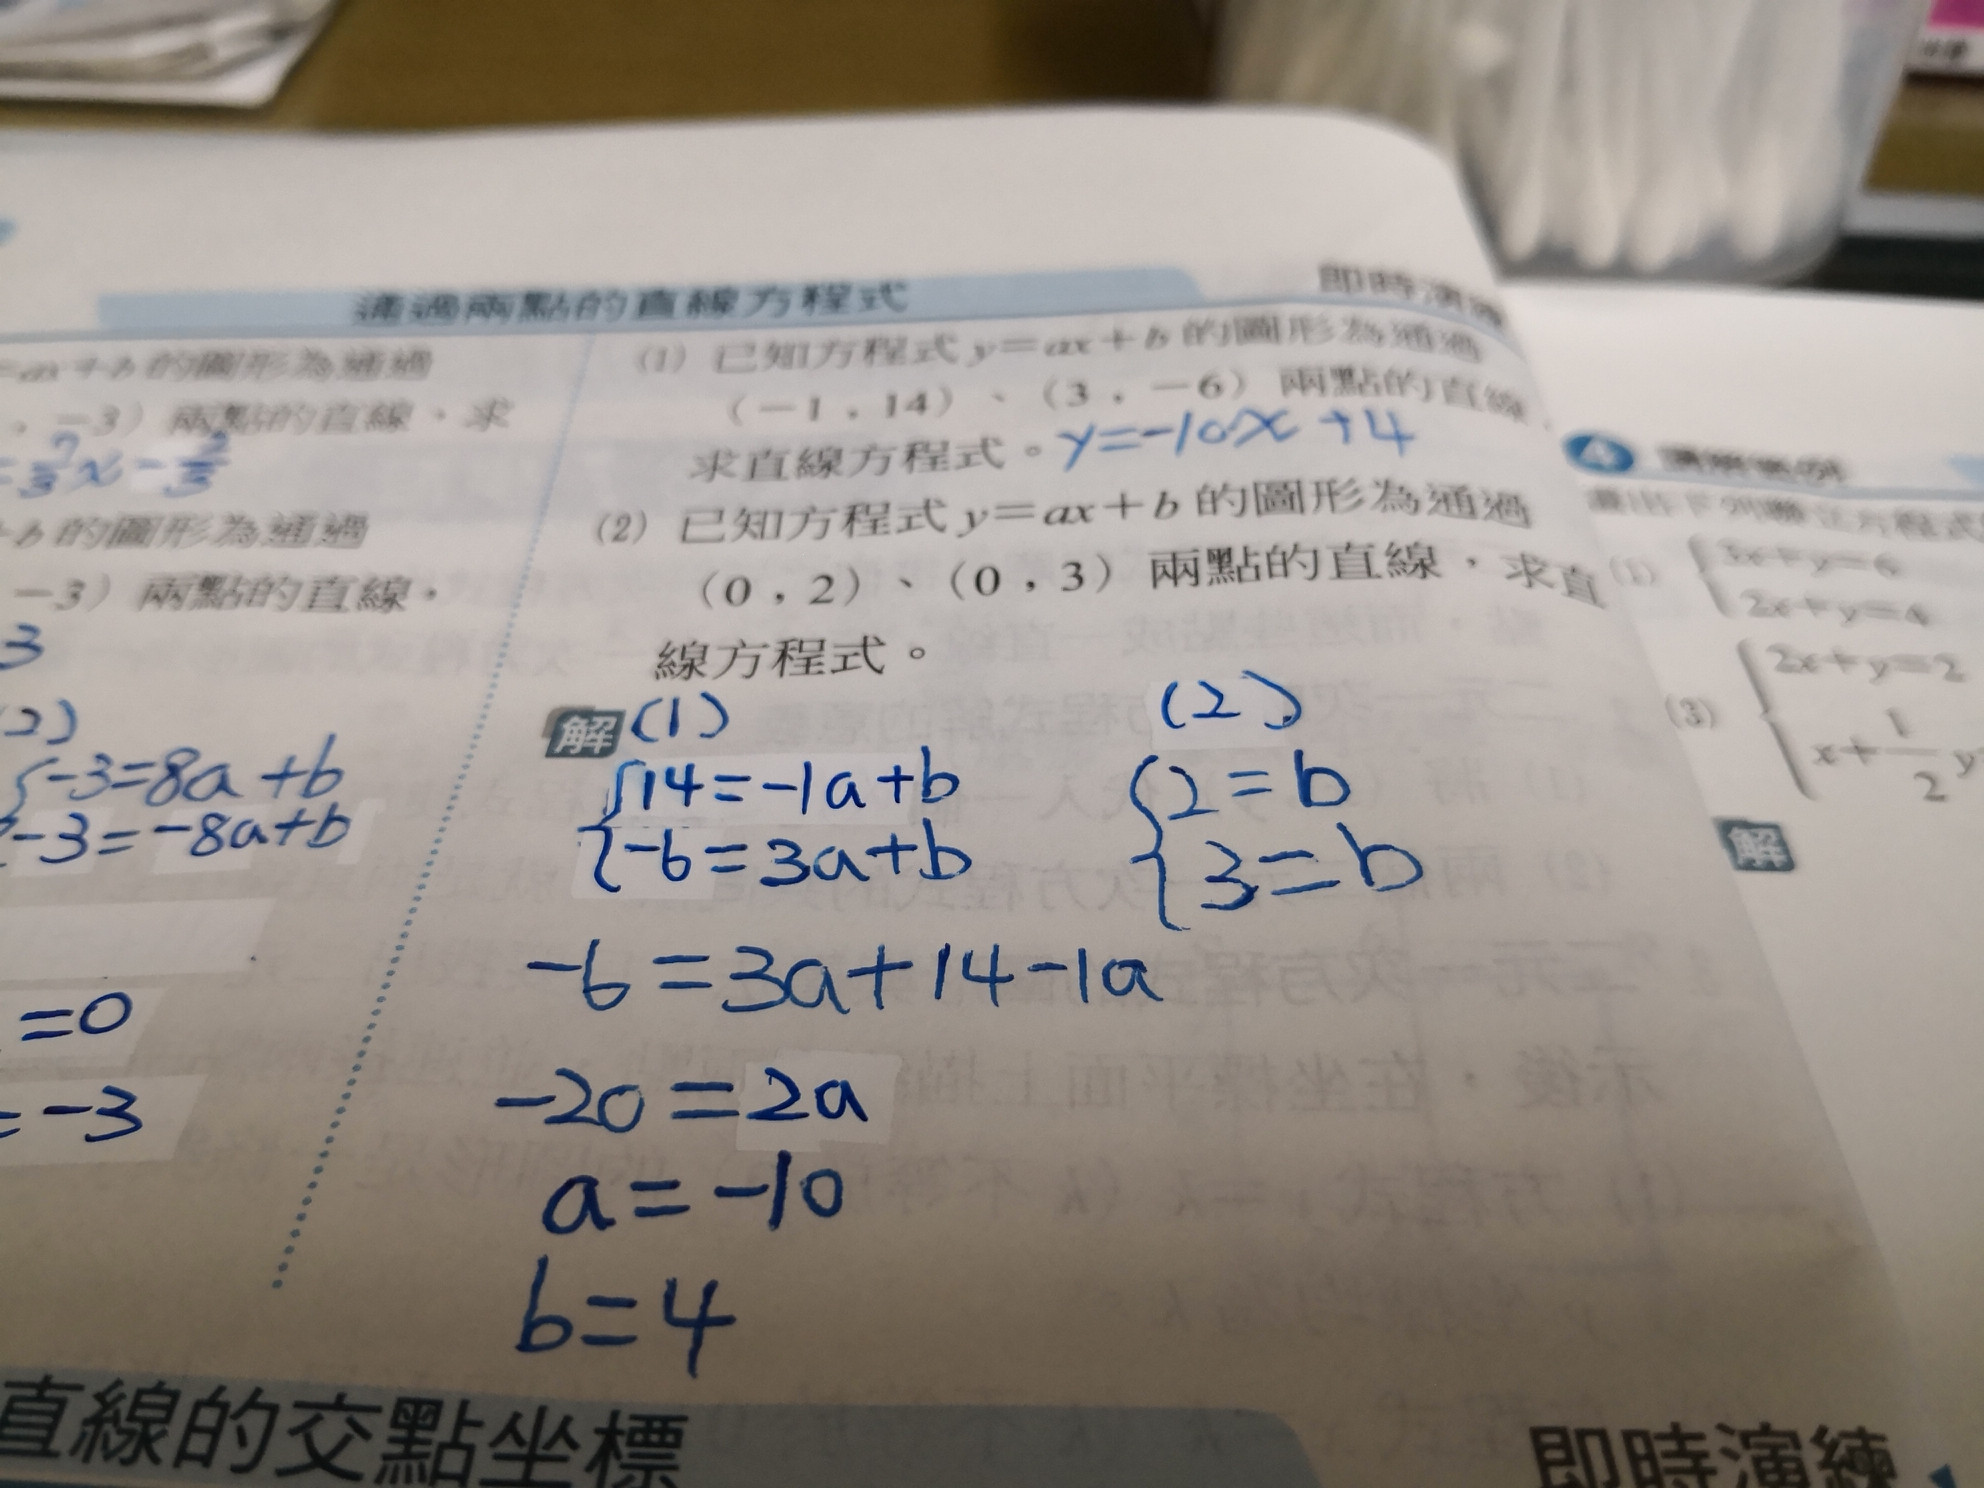 通過兩點的直線方程式
=ax+b的圖形為通過
，-3）兩點的直線，求
=7/3x-2/3
+b的圖形為通過
-3）兩點的直線，
3
2)
-3=8a+b
-3=-8a+b
=0
=-3
即時演練
(1) 已知方程式y=ax+b的圖形為通過
（-1，14）、（3，-6）兩點的直線
求直線方程式。y=-10x+4
(2) 已知方程式y=ax+b的圖形為通過
（0，2）、（0，3）兩點的直線，求直
線方程式。
解 (1)
14=-1a+b
-6=3a+b
-6=3a+14-1a
-20=2a
a=-10
b=4
(2)
2=b
3=b
直線的交點坐標
即時演練
4
方程式
(1) 3x+y=6
2x+y=4
(3) 2x+y=2
x+1/2y
解